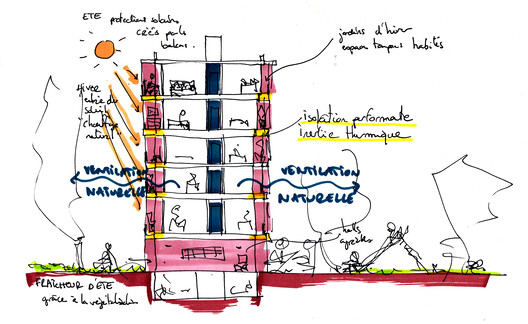 ETE protections solaires
créés par les
balcons.
jardins d'hiver
espaces tampons habités
HIVER
entrée du
soleil
chauffage
naturel
isolation performante
inertie thermique
VENTILATION
NATURELLE
VENTILATION
NATURELLE
halls
FRAÎCHEUR D'ETE
grâce à la végétalisation